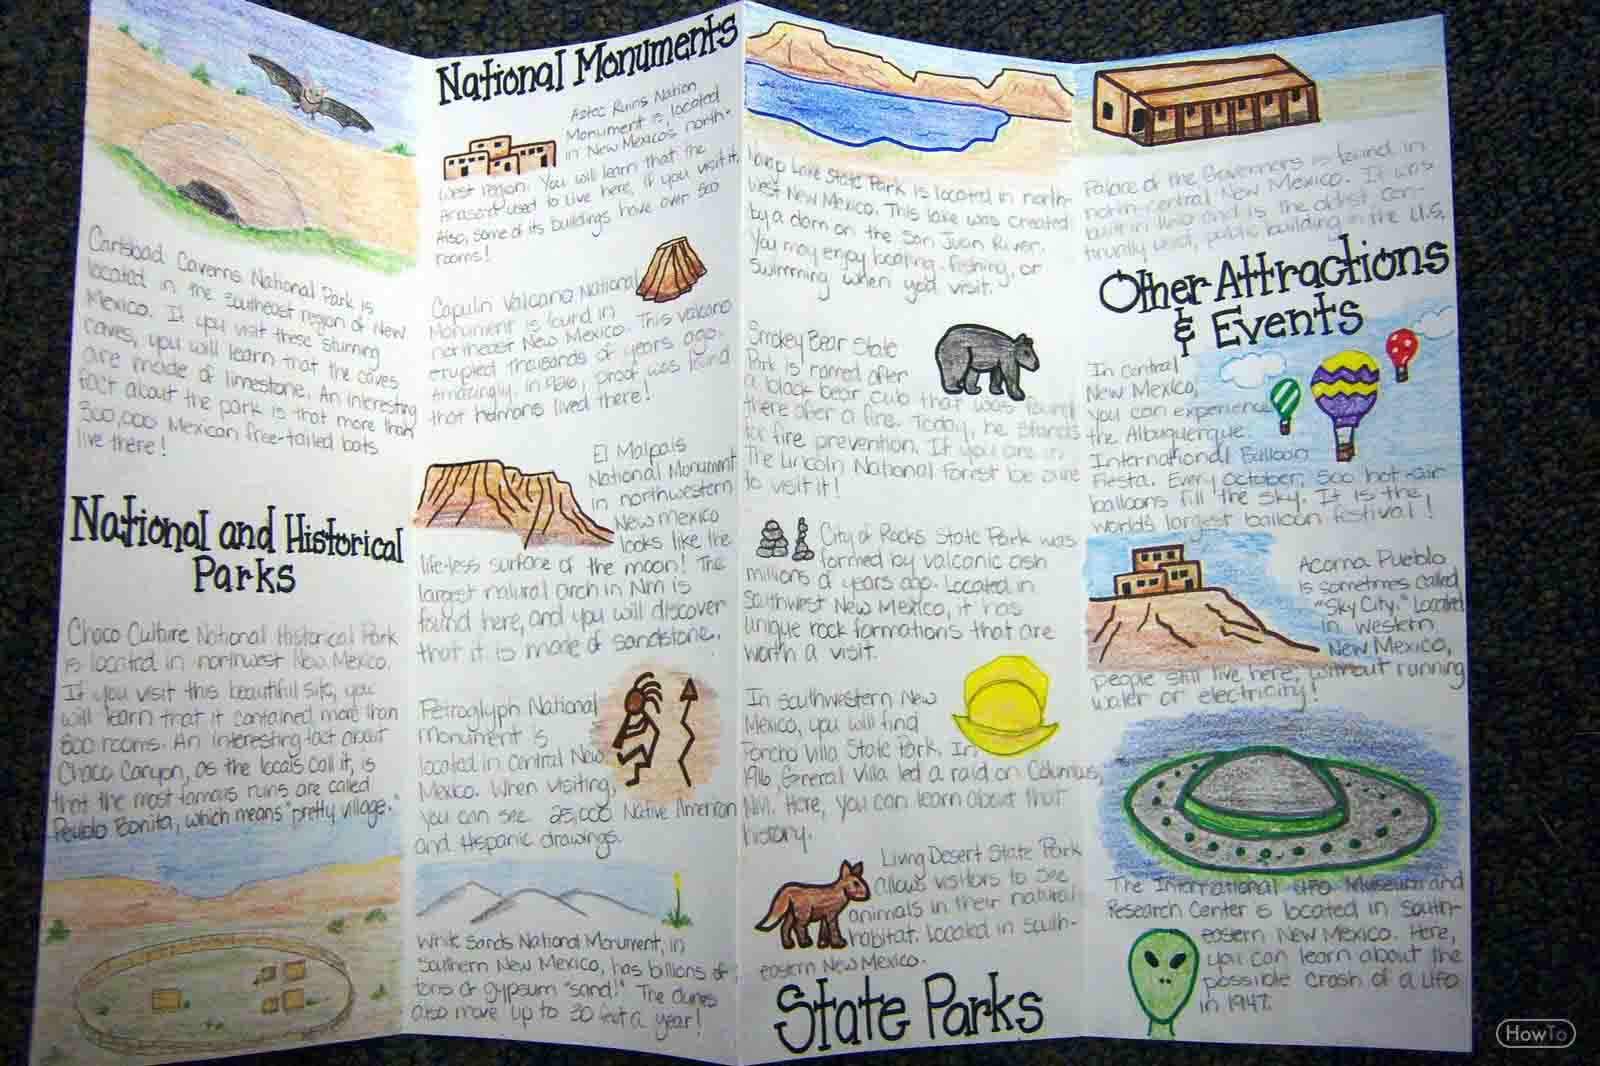 Carlsbad Caverns National Park is
located in the southeast region of New
Mexico. If you visit these stunning
caves, you will learn that the caves
are made of limestone. An interesting
fact about the park is that more than
300,000 Mexican free-tailed bats
live there!
National and Historical
Parks
Chaco Culture National Historical Park
is located in northwest New Mexico.
If you visit this beautiful site, you
will learn that it contained more than
800 rooms. An interesting fact about
Chaco Canyon, as the locals call it, is
that the most famous ruins are called
Pueblo Bonita, which means "pretty village."
National Monuments
Aztec Ruins Nation
Monument is located
in New Mexico's north-
west region. You will learn that the
Anasazi used to live here, if you visit it.
Also, some of its buildings have over 500
rooms!
Capulin Volcano National
Monument is found in
northeast New Mexico. This volcano
erupted thousands of years ago.
Amazingly, in 1926, proof was found
that humans lived there!
El Malpais
National Monument
in northwestern
New Mexico
looks like the
life-less surface of the moon! The
largest natural arch in NM is
found here, and you will discover
that it is made of sandstone.
Petroglyph National
Monument is
located in central New
Mexico. When visiting,
you can see 25,000 Native American
and Hispanic drawings.
White Sands National Monument, in
Southern New Mexico, has billions of
tons of gypsum "sand!" The dunes
also move up to 30 feet a year!
Navajo Lake State Park is located in north-
west New Mexico. This lake was created
by a dam on the San Juan River.
You may enjoy boating, fishing, or
swimming when you visit.
Smokey Bear State
Park is named after
a black bear cub that was found
there after a fire. Today, he stands
for fire prevention. If you are in
The Lincoln National Forest be sure
to visit it!
City of Rocks State Park was
formed by valcanic ash
millions of years ago. Located in
Southwest New Mexico, it has
unique rock formations that are
worth a visit.
In southwestern New
Mexico, you will find
Poncho Villa State Park. In
1916, General Villa led a raid on Columbus,
NM. Here, you can learn about that
history.
Living Desert State Park
allows visitors to see
animals in their natural
habitat. Located in south-
eastern New Mexico.
State Parks
Palace of the Governors is found in
north-central New Mexico. It was
built in 1610 and is the oldest con-
tinually used, public building in the U.S.
Other Attractions
& Events
In central
New Mexico,
you can experience
the Albuquerque
International Balloon
Fiesta. Every October, 500 hot-air
balloons fill the sky. It is the
world's largest balloon festival!
Acoma Pueblo
is sometimes called
"Sky City." Located
in western
New Mexico,
people still live here, without running
water or electricity!
The International UFO Museum and
Research Center is located in South-
eastern New Mexico. Here,
you can learn about the
possible crash of a UFO
in 1947.
HowTo